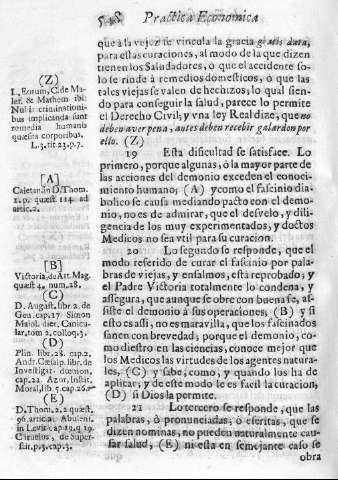 548 Practica Economica
que à la vejez se vincula la gracia gratis data,
para estas curaciones, al modo de la que dizen
tienen los Saludadores, ò que el accidente so-
lo se rinde à remedios domesticos, ò que las
tales viejas se valen de hechizos, lo qual sien-
do para conseguir la salud, parece lo permite
el Derecho Civil, y vna ley Real dize, que no
deben aver pena, antes deben recebir galardon por
ello. (Z)
19 Esta dificultad se satisface. Lo
primero, porque algunas, ò la mayor parte de
las acciones del demonio exceden el conoci-
miento humano; (A) y como el fascinio diabo-
lico se causa mediando pacto con el demo-
nio, no es de admirar, que el desvelo, y dili-
gencia de los muy experimentados, y doctos
Medicos no sea vtil para su curacion.
20 Lo segundo se responde, que el
modo referido de curar el fascinio por pala-
bras de viejas, y ensalmos, està reprobado; y
el Padre Victoria totalmente lo condena, y
assegura, que aunque se obre con buena fè, as-
siste el demonio à sus operaciones, (B) y si
esto es assi, no es maravilla, que los fascinados
sanen con brevedad; porque el demonio, co-
mo diestro en las ciencias, conoce mejor que
los Medicos las virtudes de los agentes natura-
les, (C) y sabe, como, y quando los ha de
aplicar; y de este modo le es facil la curacion,
(D) si Dios la permite.
21 Lo tercero se responde, que las
palabras, ò pronunciadas; ò escritas, que se
dizen nominas, no pueden naturalmente cau-
sar salud, (E) ni esta en semejante caso se
obra
(Z)
L. Eorum, C. de Ma-
lef. & Mathem. ibi:
Nul is criminationi-
bus implicanda sunt
remedia humanis
quæsita corporibus.
L. 3. tit. 23. p. 7.
[A]
Caietan. in D. Thom.
2. p. quæst 114. ad
artic. 2.
[B]
Victoria, de Art. Mag.
quæst 4. num. 28.
(C)
D. August. libr. 2. de
Gen. cap. 17. Simon
Maiol. dier. Canicu-
lar, tom 2. colloq. 3.
(D)
Plin. libr. 28. cap. 2,
Andr. Cæsalp. libr. de
Investigat. dæmon.
cap. 22. Azor, Instit.
Moral, lib 5. cap. 26.
(E)
D. Thom. 2. 2 quæst.
96. artic. Abulens.
in Levit. cap. 19. q 19.
Ciruelus, de Super-
stit. p 3. cap. 3.